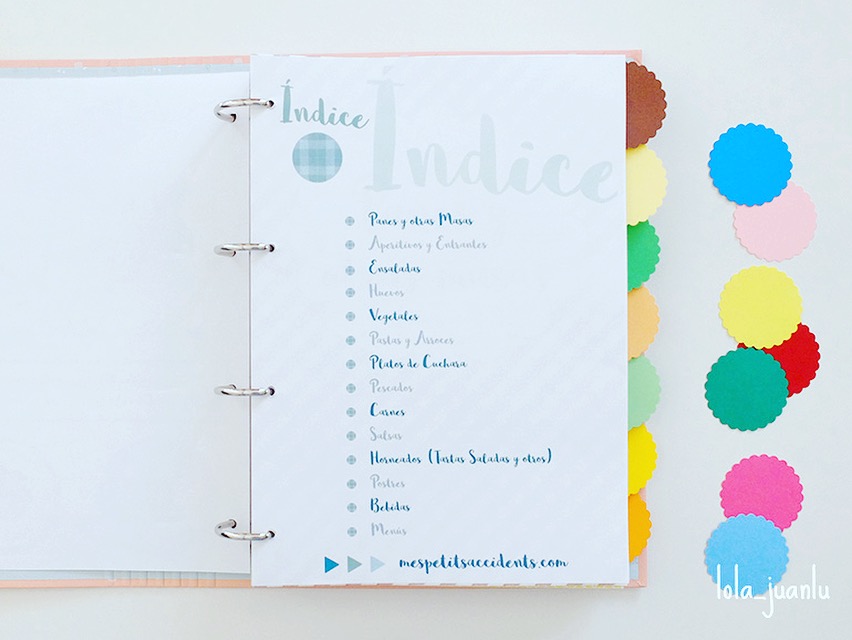 Índice
Índice
Panes y otras Masas
Aperitivos y Entrantes
Ensaladas
Huevos
Vegetales
Pastas y Arroces
Platos de Cuchara
Pescados
Carnes
Salsas
Horneados (Tartas Saladas y otros)
Postres
Bebidas
Menús
mespetitsaccidents.com
lola_juanlu